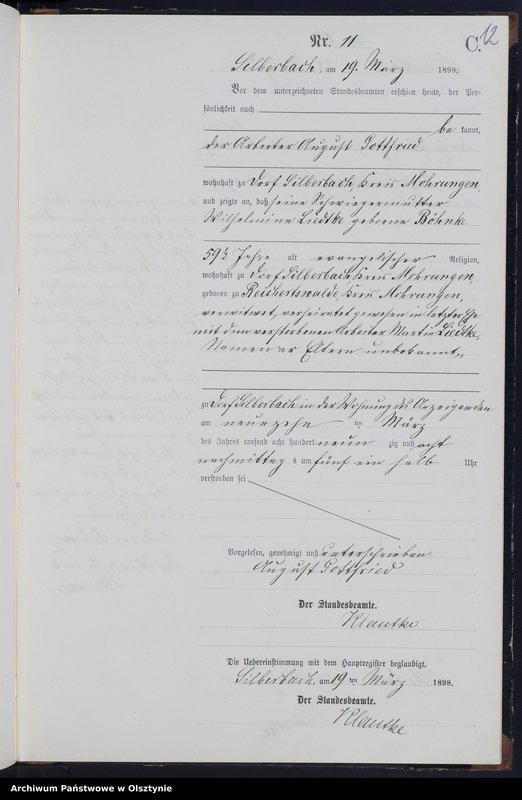 12
Nr. 11
C.
Silberbach, am 19. März 1898.
Vor dem unterzeichneten Standesbeamten erschien heute, der Per-
sönlichkeit nach
be kannt,
der Arbeiter August Gottfried
wohnhaft zu Dorf Silberbach, Kreis Mohrungen,
und zeigte an, daß seine Schwiegermutter
Wilhelmine Liedtke geborne Böhnke
59½ Jahre alt evangelischer Religion,
wohnhaft zu Dorf Silberbach, Kreis Mohrungen,
geboren zu Reichertswalde, Kreis Mohrungen,
verwitwet, verheiratet gewesen in letzter Ehe
mit dem verstorbenen Arbeiter Martin Liedtke,
Namen der Eltern unbekannt,
zu Dorf Silberbach in der Wohnung des Anzeigenden
am neunzehn ten März
des Jahres tausend acht hundert neun zig und acht
nachmittag s um fünf ein halb Uhr
verstorben sei
Vorgelesen, genehmigt und unterschrieben.
August Gottfried
Der Standesbeamte.
Klautke
Die Uebereinstimmung mit dem Hauptregister beglaubigt.
Silberbach, am 19 ten März 1898.
Der Standesbeamte.
Klautke
Archiwum Państwowe w Olsztynie